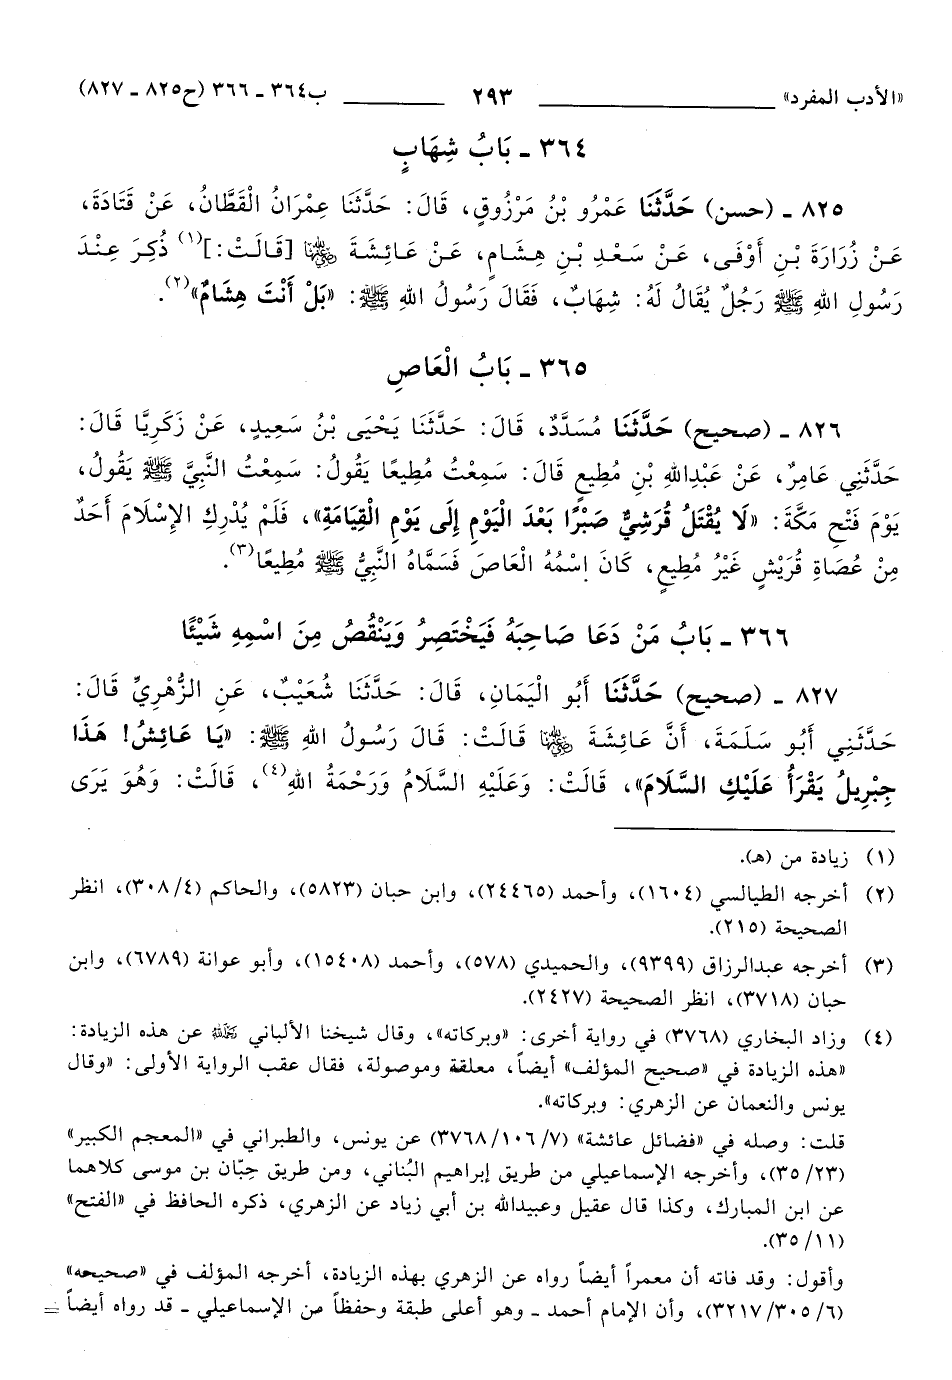 «الأدب المفرد» ٢٩٣ ب٣٦٤ ـ ٣٦٦ (ح٨٢٥ ـ ٨٢٧)
٣٦٤ ـ بَابُ شِهَابٍ
٨٢٥ ـ (حسن) حَدَّثَنَا عَمْرُو بْنُ مَرْزُوقٍ، قَالَ: حَدَّثَنَا عِمْرَانُ الْقَطَّانُ، عَنْ قَتَادَةَ،
عَنْ زُرَارَةَ بْنِ أَوْفَى، عَنْ سَعْدِ بْنِ هِشَامٍ، عَنْ عَائِشَةَ رضي الله عنها [قَالَتْ:](١) ذُكِرَ عِنْدَ
رَسُولِ اللهِ ﷺ رَجُلٌ يُقَالُ لَهُ: شِهَابٌ، فَقَالَ رَسُولُ اللهِ ﷺ: «بَلْ أَنْتَ هِشَامٌ»(٢).
٣٦٥ ـ بَابُ الْعَاصِ
٨٢٦ ـ (صحيح) حَدَّثَنَا مُسَدَّدٌ، قَالَ: حَدَّثَنَا يَحْيَى بْنُ سَعِيدٍ، عَنْ زَكَرِيَّا قَالَ:
حَدَّثَنِي عَامِرٌ، عَنْ عَبْدِاللهِ بْنِ مُطِيعٍ قَالَ: سَمِعْتُ مُطِيعًا يَقُولُ: سَمِعْتُ النَّبِيَّ ﷺ يَقُولُ،
يَوْمَ فَتْحِ مَكَّةَ: «لَا يُقْتَلُ قُرَشِيٌّ صَبْرًا بَعْدَ الْيَوْمِ إِلَى يَوْمِ الْقِيَامَةِ»، فَلَمْ يُدْرِكِ الإِسْلَامَ أَحَدٌ
مِنْ عُصَاةِ قُرَيْشٍ غَيْرُ مُطِيعٍ، كَانَ اسْمُهُ الْعَاصَ فَسَمَّاهُ النَّبِيُّ ﷺ مُطِيعًا(٣).
٣٦٦ ـ بَابُ مَنْ دَعَا صَاحِبَهُ فَيَخْتَصِرُ وَيَنْقُصُ مِنَ اسْمِهِ شَيْئًا
٨٢٧ ـ (صحيح) حَدَّثَنَا أَبُو الْيَمَانِ، قَالَ: حَدَّثَنَا شُعَيْبٌ، عَنِ الزُّهْرِيِّ قَالَ:
حَدَّثَنِي أَبُو سَلَمَةَ، أَنَّ عَائِشَةَ رضي الله عنها قَالَتْ: قَالَ رَسُولُ اللهِ ﷺ: «يَا عَائِشُ! هَذَا
جِبْرِيلُ يَقْرَأُ عَلَيْكِ السَّلَامَ»، قَالَتْ: وَعَلَيْهِ السَّلَامُ وَرَحْمَةُ اللهِ(٤)، قَالَتْ: وَهُوَ يَرَى
(١) زيادة من (هـ).
(٢) أخرجه الطيالسي (١٦٠٤)، وأحمد (٢٤٤٦٥)، وابن حبان (٥٨٢٣)، والحاكم (٣٠٨/٤)، انظر
الصحيحة (٢١٥).
(٣) أخرجه عبدالرزاق (٩٣٩٩)، والحميدي (٥٧٨)، وأحمد (١٥٤٠٨)، وأبو عوانة (٦٧٨٩)، وابن
حبان (٣٧١٨)، انظر الصحيحة (٢٤٢٧).
(٤) وزاد البخاري (٣٧٦٨) في رواية أخرى: «وبركاته»، وقال شيخنا الألباني رحمه الله عن هذه الزيادة:
«هذه الزيادة في «صحيح المؤلف» أيضاً، معلقة وموصولة، فقال عقب الرواية الأولى: «وقال
يونس والنعمان عن الزهري: وبركاته».
قلت: وصله في «فضائل عائشة» (٣٧٦٨/١٠٦/٧) عن يونس، والطبراني في «المعجم الكبير»
(٣٥/٢٣)، وأخرجه الإسماعيلي من طريق إبراهيم البُناني، ومن طريق حِبّان بن موسى كلاهما
عن ابن المبارك، وكذا قال عقيل وعبيدالله بن أبي زياد عن الزهري، ذكره الحافظ في «الفتح»
(٣٥/١١).
وأقول: وقد فاته أن معمراً أيضاً رواه عن الزهري بهذه الزيادة، أخرجه المؤلف في «صحيحه»
(٣٢١٧/٣٠٥/٦)، وأن الإمام أحمد ـ وهو أعلى طبقة وحفظاً من الإسماعيلي ـ قد رواه أيضاً =